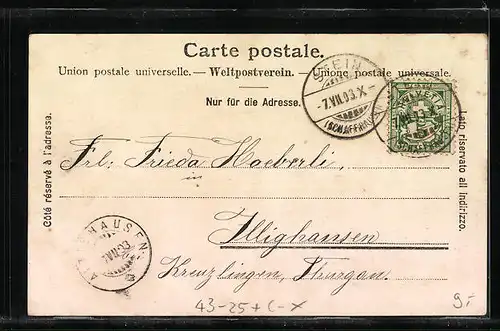 Carte postale.
Union postale universelle. — Weltpostverein. — Unione postale universale.
Nur für die Adresse.
Côté réservé à l'adresse.
Lato riservato all indirizzo.
STEIN
-7.VII.03.X-
(SCHAFFHAUSEN)
HELVETIA
Frl: Frieda Haeberli,
in
Illighausen
Kreuzlingen, Thurgau.
HAUSEN
VII.03
43-25+C-X
9.-